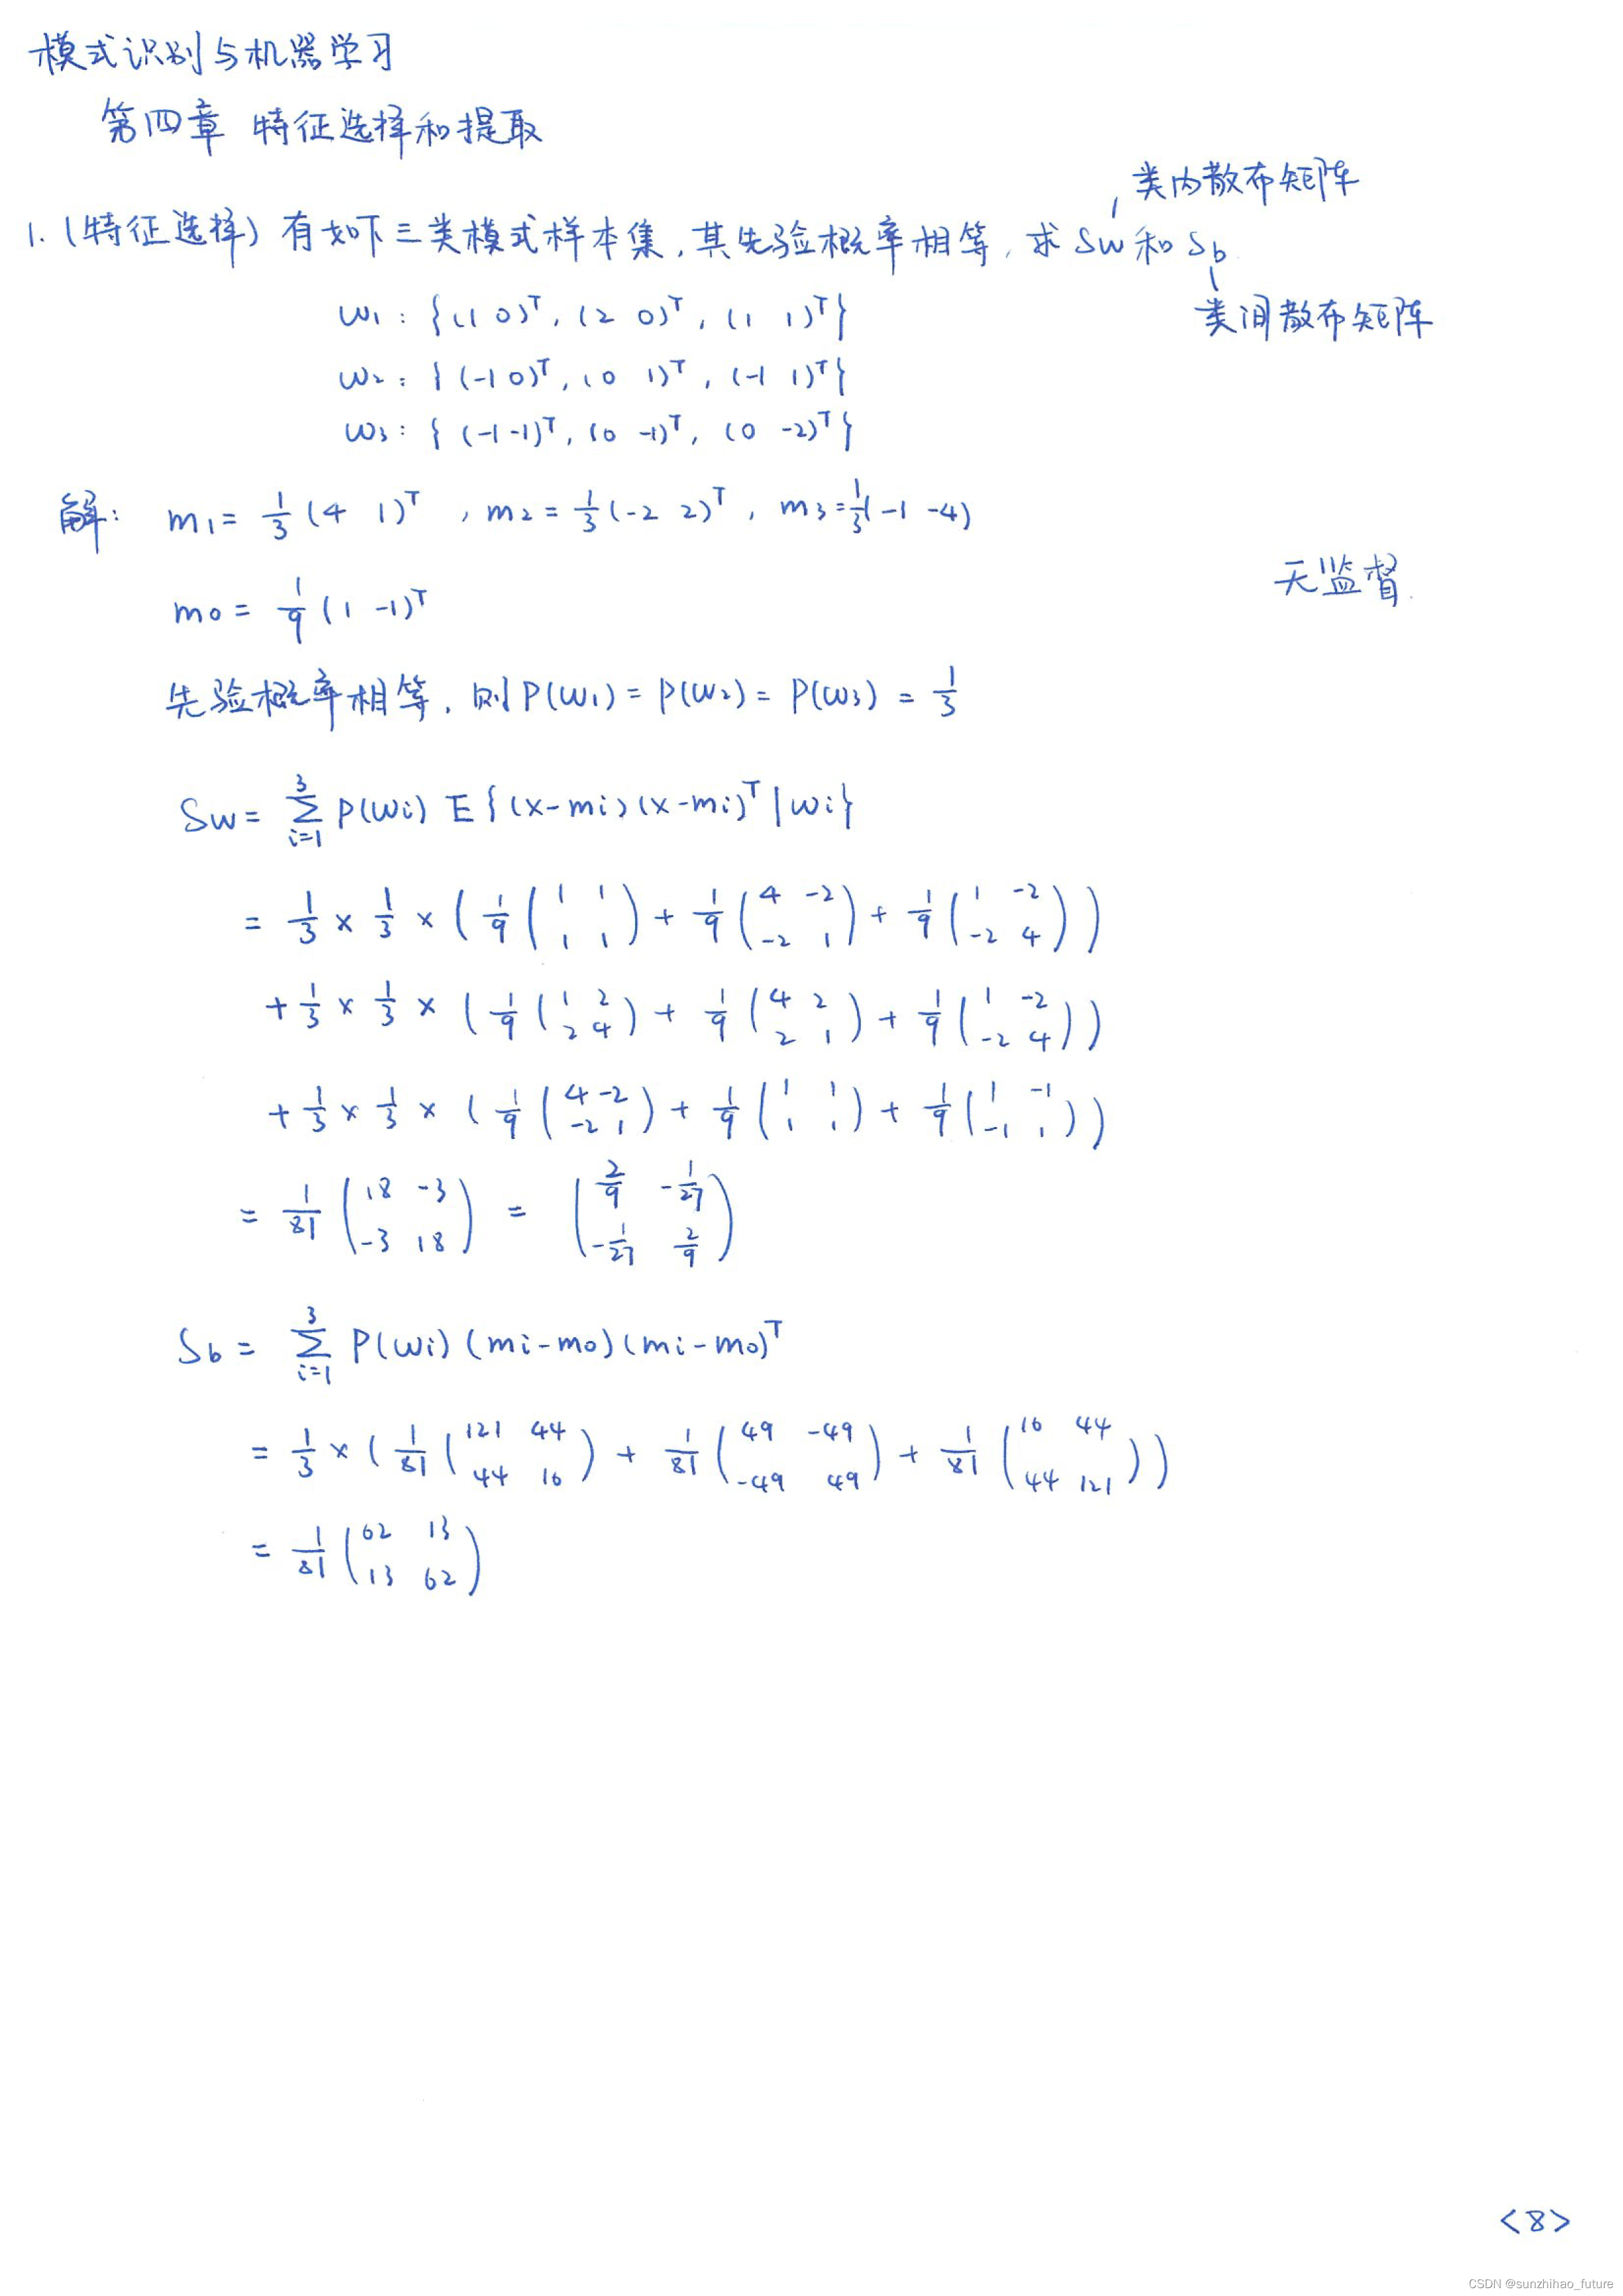 模式识别与机器学习
第四章 特征选择和提取
类内散布矩阵
1.(特征选择)有如下三类模式样本集,其先验概率相等,求Sw和Sb
类间散布矩阵
ω1:{(1 0)ᵀ, (2 0)ᵀ, (1 1)ᵀ}
ω2:{(-1 0)ᵀ, (0 1)ᵀ, (-1 1)ᵀ}
ω3:{(-1 -1)ᵀ, (0 -1)ᵀ, (0 -2)ᵀ}
解: m1 = 1/3 (4 1)ᵀ, m2 = 1/3 (-2 2)ᵀ, m3 = 1/3 (-1 -4)
无监督
m0 = 1/9 (1 -1)ᵀ
先验概率相等,则P(ω1) = P(ω2) = P(ω3) = 1/3
Sw = Σ_{i=1}^{3} P(ωi) E{(x-mi)(x-mi)ᵀ|ωi}
= 1/3 × 1/3 × (1/9 (1 1; 1 1) + 1/9 (4 -2; -2 1) + 1/9 (1 -2; -2 4))
+ 1/3 × 1/3 × (1/9 (1 2; 2 4) + 1/9 (4 2; 2 1) + 1/9 (1 -2; -2 4))
+ 1/3 × 1/3 × (1/9 (4 -2; -2 1) + 1/9 (1 1; 1 1) + 1/9 (1 -1; -1 1))
= 1/81 (18 -3; -3 18) = (2/9 -1/27; -1/27 2/9)
Sb = Σ_{i=1}^{3} P(ωi)(mi-m0)(mi-m0)ᵀ
= 1/3 × (1/81 (121 44; 44 16) + 1/81 (49 -49; -49 49) + 1/81 (16 44; 44 121))
= 1/81 (62 13; 13 62)
<8>
CSDN @sunzhihao_future